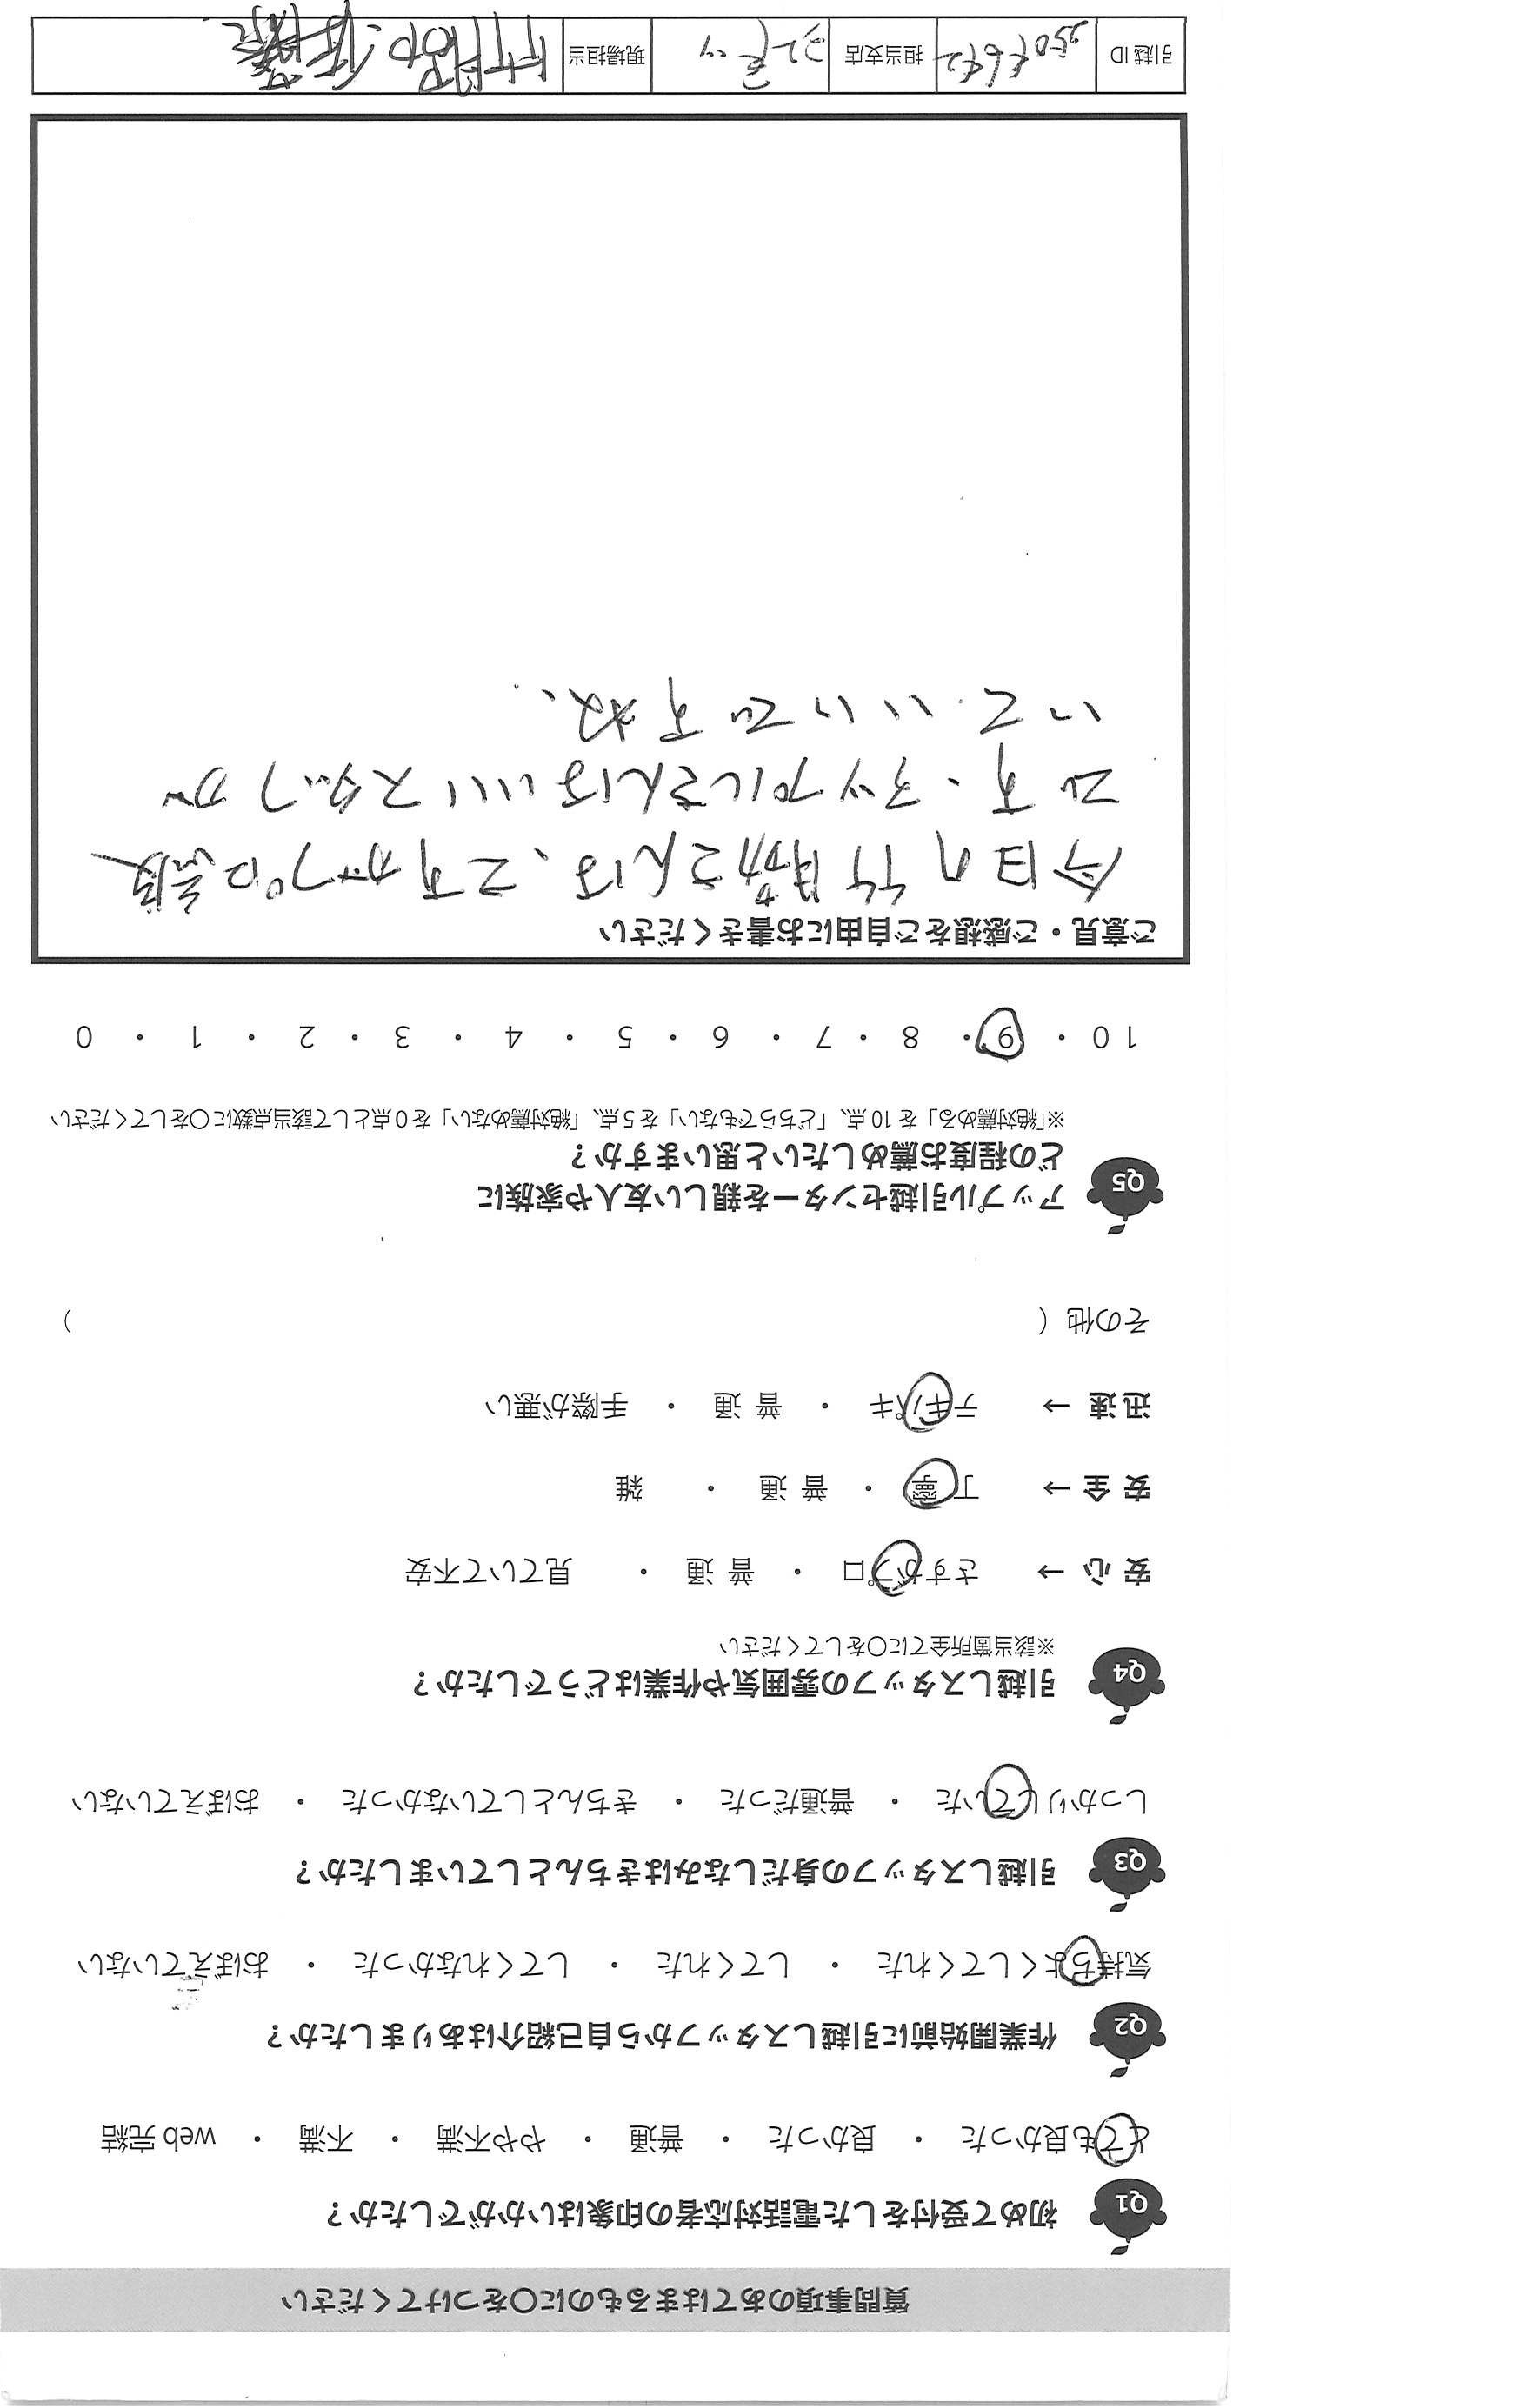 質問事項のあてはまるものに○をつけてください
Q1 初めて受付をした電話対応者の印象はいかがでしたか？
とても良かった ・ 良かった ・ 普通 ・ やや不満 ・ 不満 ・ web 完結
Q2 作業開始前に引越しスタッフから自己紹介はありましたか？
気持ちよくしてくれた ・ してくれた ・ してくれなかった ・ おぼえていない
Q3 引越しスタッフの身だしなみはきちんとしていましたか？
しっかりしていた ・ 普通だった ・ きちんとしていなかった ・ おぼえていない
Q4 引越しスタッフの雰囲気や作業はどうでしたか？
※該当箇所全てに○をしてください
安 心 → さすがプロ ・ 普 通 ・ 見ていて不安
安 全 → 丁 寧 ・ 普 通 ・ 雑
迅 速 → テキパキ ・ 普 通 ・ 手際が悪い
その他（ ）
Q5 アップル引越センターを親しい友人や家族に
どの程度お薦めしたいと思いますか？
※「絶対薦める」を 10 点、「どちらでもない」を 5 点、「絶対薦めない」を 0 点として該当点数に○をしてください
10 ・ 9 ・ 8 ・ 7 ・ 6 ・ 5 ・ 4 ・ 3 ・ 2 ・ 1 ・ 0
ご意見・ご感想をご自由にお書きください
今日の竹勝さんは、さすがプロ
です。アップルさんはいいスタッフが
いていいですね、
引越 ID 担当支店 現場担当